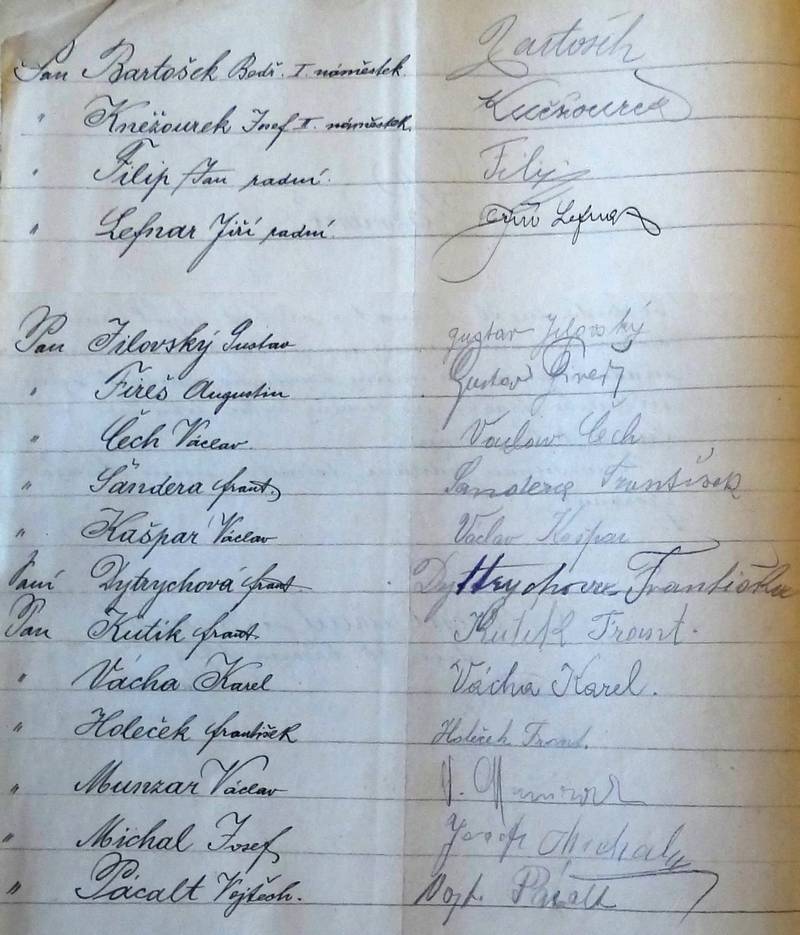 Pan Bartošek Bedř. I. náměstek. Bartošek
" Kněžourek Josef II. náměstek. Kněžourek
" Filip Jan radní. Filip
" Lefnar Jiří radní. Jiří Lefnar
Pan Jilovský Gustav gustav Jilovský
" Fireš Augustin
" Čech Václav Václav Čech
" Šandera frant. Šandera František
" Kašpar Václav Václav Kašpar
Paní Dytrychová frant. Dyttrychova Františka
Pan Kutík frant. Kutík Frant.
" Vácha Karel Vácha Karel.
" Holeček františek Holeček Frant.
" Munzar Václav V. Munzar
" Michal Josef Josef Michal
" Pácalt Vojtěch. Vojt. Pácalt